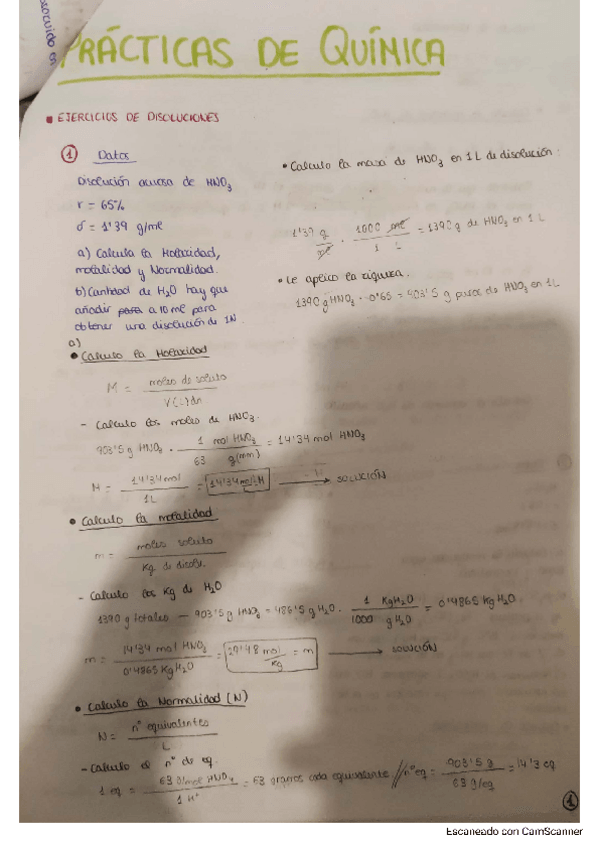 PRÁCTICAS DE QUÍMICA
EJERCICIOS DE DISOLUCIONES
1 Datos
Disolución acuosa de HNO3
r = 65%
δ = 1'39 g/ml
a) Calcula la Molaridad,
molalidad y Normalidad.
b) Cantidad de H2O hay que
añadir para a 10 ml para
obtener una disolución de 1N.
• Calculo la masa de HNO3 en 1 L de disolución:
1'39 g/ml · 1000 ml/1 L = 1390 g de HNO3 en 1 L
• Le aplico la riqueza.
1390 g HNO3 · 0'65 = 903'5 g puros de HNO3 en 1L
a)
• Calculo la Molaridad
M = moles de soluto / V(L) dn
- Calculo los moles de HNO3.
903'5 g HNO3 · 1 mol HNO3 / 63 g(mm) = 14'34 mol HNO3
M = 14'34 mol / 1L = 14'34 mol/L M → SOLUCIÓN
• Calculo la molalidad
m = moles soluto / Kg de disolv.
- Calculo los Kg de H2O
1390 g totales - 903'5 g HNO3 = 486'5 g H2O · 1 KgH2O / 1000 g H2O = 0'4865 Kg H2O
m = 14'34 mol HNO3 / 0'4865 Kg H2O = 29'48 mol/Kg = m → SOLUCIÓN
• Calculo la Normalidad (N)
N = nº equivalentes / L
- Calculo el nº de eq.
1 eq = 63 g/mol HNO3 / 1 H+ = 63 gramos cada equivalente // nº eq = 903'5 g / 63 g/eq = 14'3 eq
1
Escaneado con CamScanner